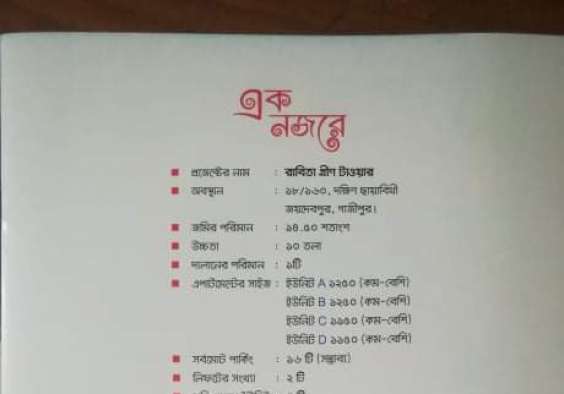 এক
নজরে
প্রজেক্টের নাম : রাবিতা গ্রীণ টাওয়ার
অবস্থান : ১৮/১৬০, দক্ষিণ ছায়াবিথী
জয়দেবপুর, গাজীপুর।
জমির পরিমান : ১৪.৫০ শতাংশ
উচ্চতা : ১০ তলা
দালানের পরিমান : ১টি
এপার্টমেন্টের সাইজ : ইউনিট A ১২৫০ (কম-বেশি)
ইউনিট B ১২৫০ (কম-বেশি)
ইউনিট C ১১৫০ (কম-বেশি)
ইউনিট D ১১৫০ (কম-বেশি)
সর্বমোট পার্কিং : ১৬ টি (সম্ভাব্য)
লিফটের সংখ্যা : ২ টি